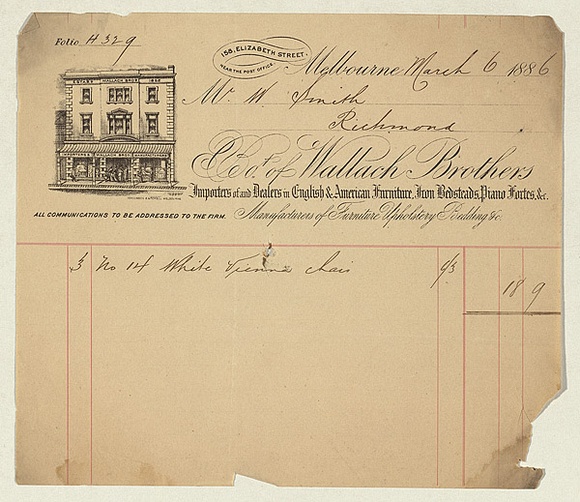 Folio H 329
158, ELIZABETH STREET,
NEAR THE POST OFFICE.
Melbourne March 6 1886
Mr. W. Smith
Richmond
Bot. of Wallach Brothers
Importers of and Dealers in English & American Furniture, Iron Bedsteads, Piano Fortes, &c.
ALL COMMUNICATIONS TO BE ADDRESSED TO THE FIRM.
Manufacturers of Furniture Upholstery Bedding &c.
WALLACH BROS
3 No 14 White Vienna chais 6/3 18 9